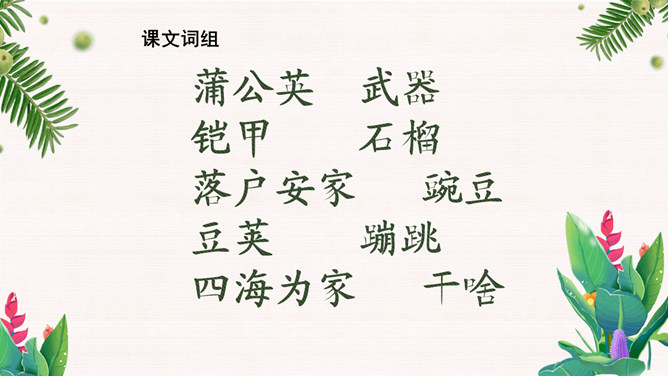 课文词组
蒲公英 武器
铠甲 石榴
落户安家 豌豆
豆荚 蹦跳
四海为家 干啥